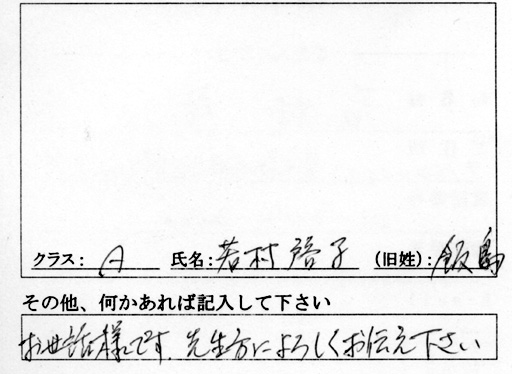 クラス: A 氏名: 若村 啓子 (旧姓): 飯島
その他、何かあれば記入して下さい
お世話様です。先生方によろしくお伝え下さい